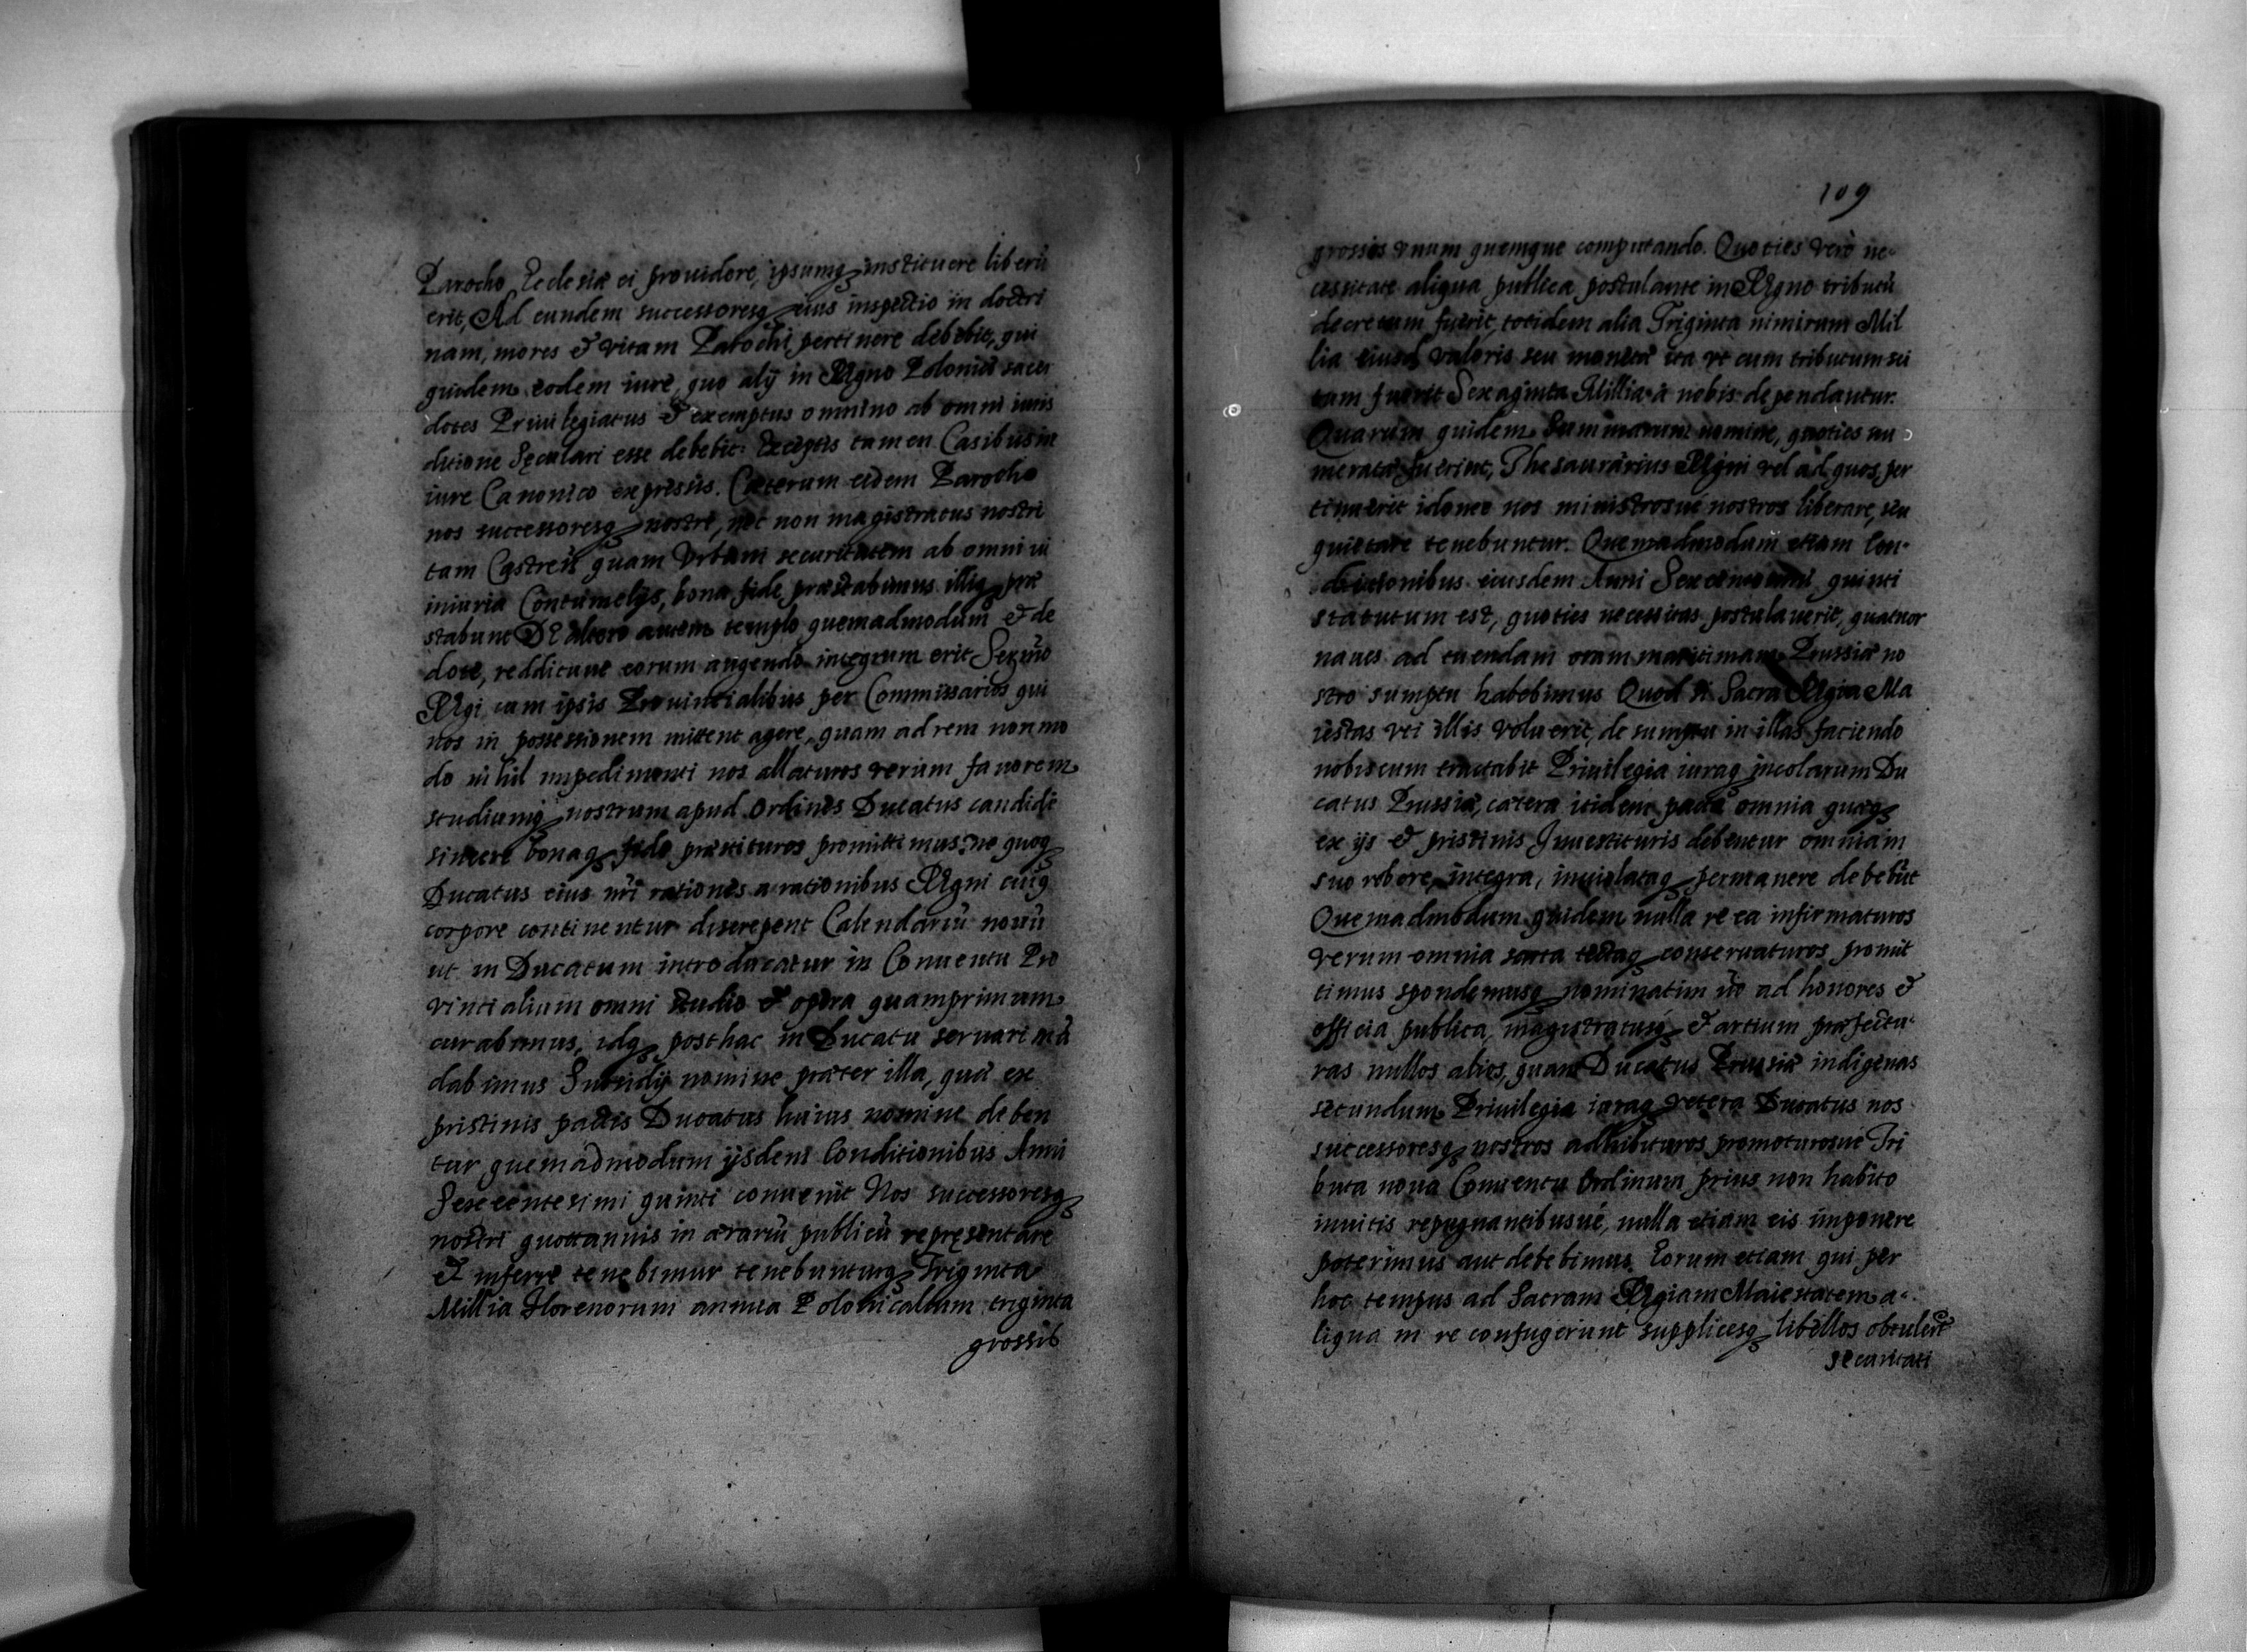 Parocho Ecclesiæ ei prouidere, ipsumq instituere liberū
erit, Ad eundem successoresq eius inspectio in doctri
nam, mores & vitam Parochi pertinere debebit, qui
quidem eodem iure, quo alij in Regno Poloniæ sacer
dotes Priuilegiatus & exemptus omnino ab omni iuris
ditione Sęculari esse debebit: Exceptis tamen Casibus in
iure Canonico expressis. Cæterum eidem Parocho
nos successoresq nostri, nec non magistratus nostri
tam Castren quam Vrbani securitatem ab omni ui
iniuria Contumelijs, bona fide præstabimus illiq præ
stabunt De altero autem templo quemadmodum & de
dote, reddituue eorum augendo integrum erit Serm̄o
Regi cum ipsis Prouincialibus per Commissarios qui
nos in possessionem mittent agere, quam ad rem non mo
do nihil impedimenti nos allaturos verum fauorem
studiumq nostrum apud Ordines Ducatus candide
sincere bonaq fide præstituros promittimus: ne quoq
Ducatus eius nri rationes a rationibus Regni cuiq
corpore continentur discrepent Calendariū nouū
ut in Ducatum introducatur in Conuentu Pro
vincialium omni studio & opera quamprimum
curabimus, idq posthac in Ducatu seruari mā
dabimus Subsidij nomine præter illa, quæ ex
pristinis pactis Ducatus huius nomine deben
tur, quemadmodum ijsdem Conditionibus Anni
Sexcentesimi quinti conuenit Nos successoresq
nostri quottannis in ærariū publicū repręsentare
& inferre tenebimur tenebunturq Triginta
Millia Florenorum annua Polonicalium triginta
grossis
109
grossis vnum quemque computando. Quoties verò ne-
cessitate aliqua publica postulante in Regno tributū
decretum fuerit, totidem alia Triginta nimirum Mil
lia eiusd valoris seu monetæ ita vt cum tributum sci
tum fuerit Sexaginta Millia à nobis dependantur.
Quarum quidem Summarum nomine, quoties nu
meratæ fuerint, Thesaurarius Regni vel ad quos per
tinuerit idonee nos ministrosue nostros liberare, seu
quietare tenebuntur. Quemadmodum etiam Con-
ditionibus eiusdem Anni Sexcentesimi quinti
statutum est, quoties necessitas postulauerit, quatuor
naues ad tuendam oram maritimam Prussiæ no
stro sumptu habebimus Quod si Sacra Regia Ma
iestas vti illis voluerit, de sumptu in illas faciendo
nobiscum tractabit Priuilegia iuraq incolarum Du
catus Prussiæ, cætera itidem pacta omnia quæq
ex ijs & pristinis Inuestituris debentur omnia in
suo robore, integra, inuiolataq permanere debebūt
Quemadmodum quidem nulla re ea infirmaturos
verum omnia sarta tectaq conseruaturos promit
timus spondemusq nominatim ūo ad honores &
officia publica, magistratusq & artium præfectu-
ras nullos alios, quam Ducatus Prussiæ indigenas
secundum Priuilegia iuraq vetera Ducatus nos
successoresq nostros adhibituros promoturosue Tri
buta noua Conuentu Ordinum prius non habito
inuitis repugnantibusué, nulla etiam eis imponere
poterimus aut debebimus. Eorum etiam qui per
hoc tempus ad Sacram Regiam Maiestatem a-
liqua in re confugerunt supplicesq libellos obtulert
securitati